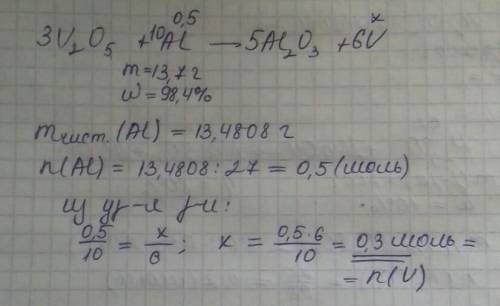 0,5 x
3V₂O₅ + 10Al → 5Al₂O₃ + 6V
m = 13,7 г
ω = 98,4%
m чист. (Al) = 13,4808 г
n(Al) = 13,4808 : 27 = 0,5 (моль)
из ур-я р-и:
0,5/10 = x/6 ; x = 0,5·6/10 = 0,3 моль =
= n(V)